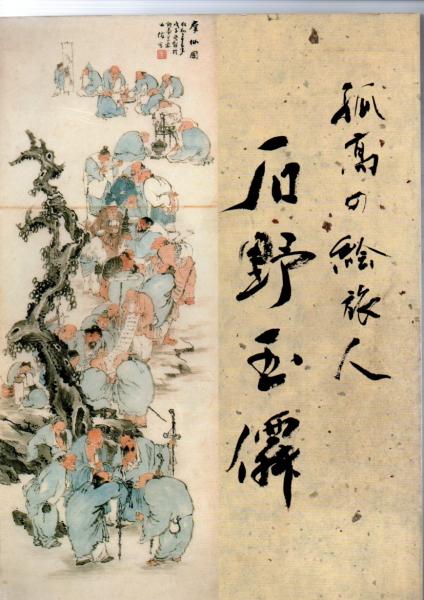 孤高の絵旅人
石野玉僊
群仙圖